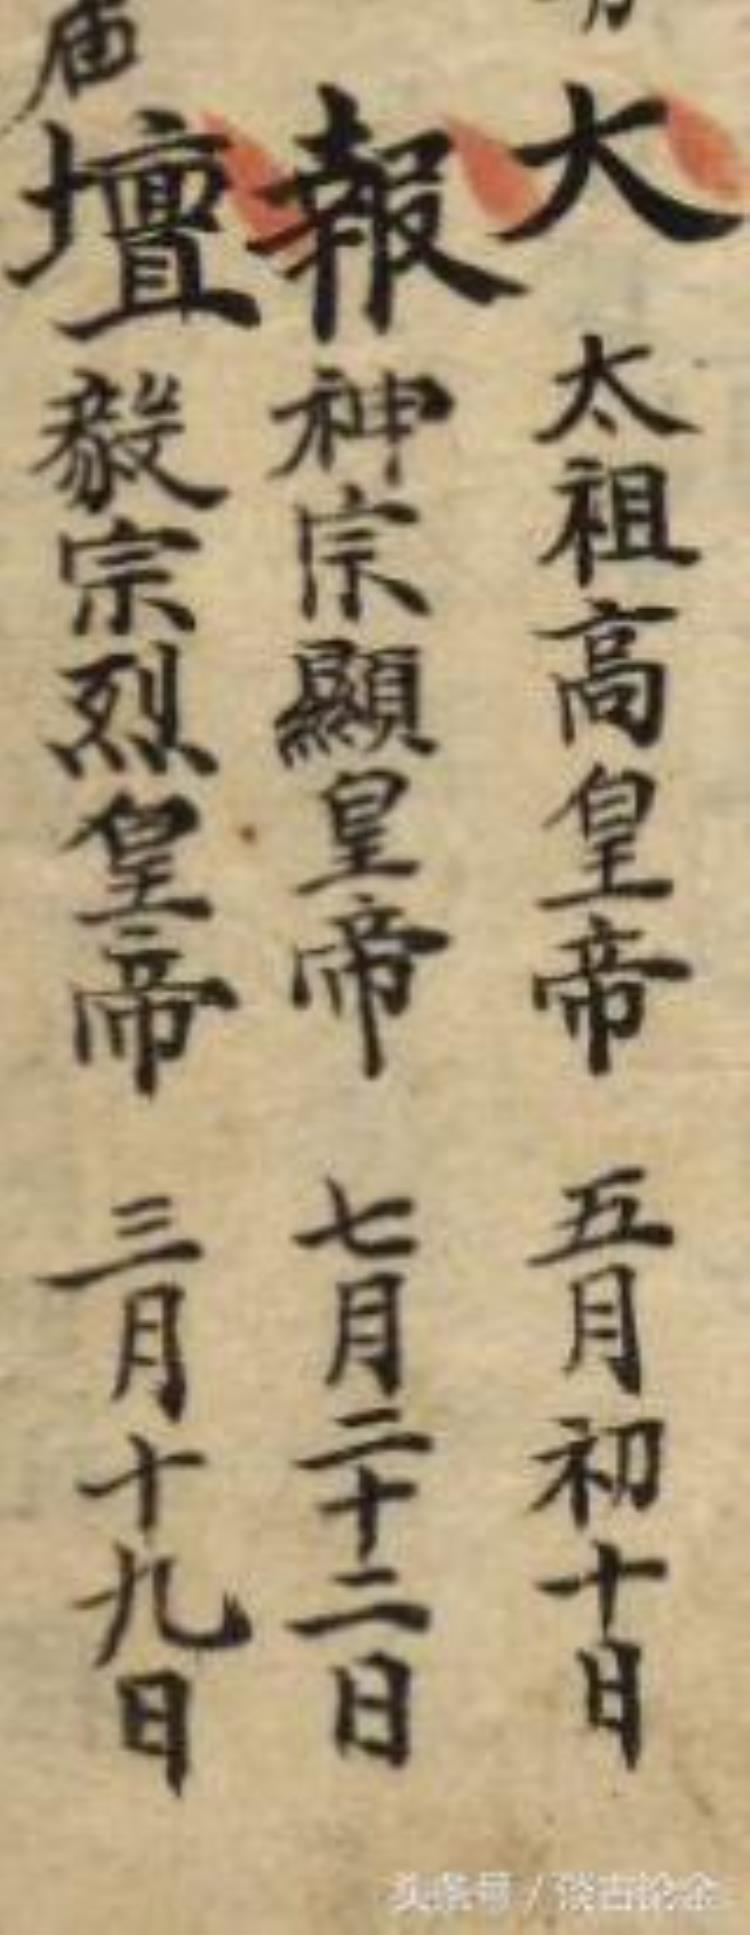 大 太祖高皇帝 五月初十日
報 神宗顯皇帝 七月二十二日
壇 毅宗烈皇帝 三月十九日
頭条号 / 谈古论金